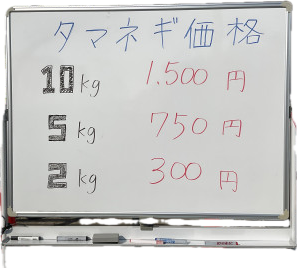 タマネギ価格
10kg 1.500円
5kg 750円
2kg 300円